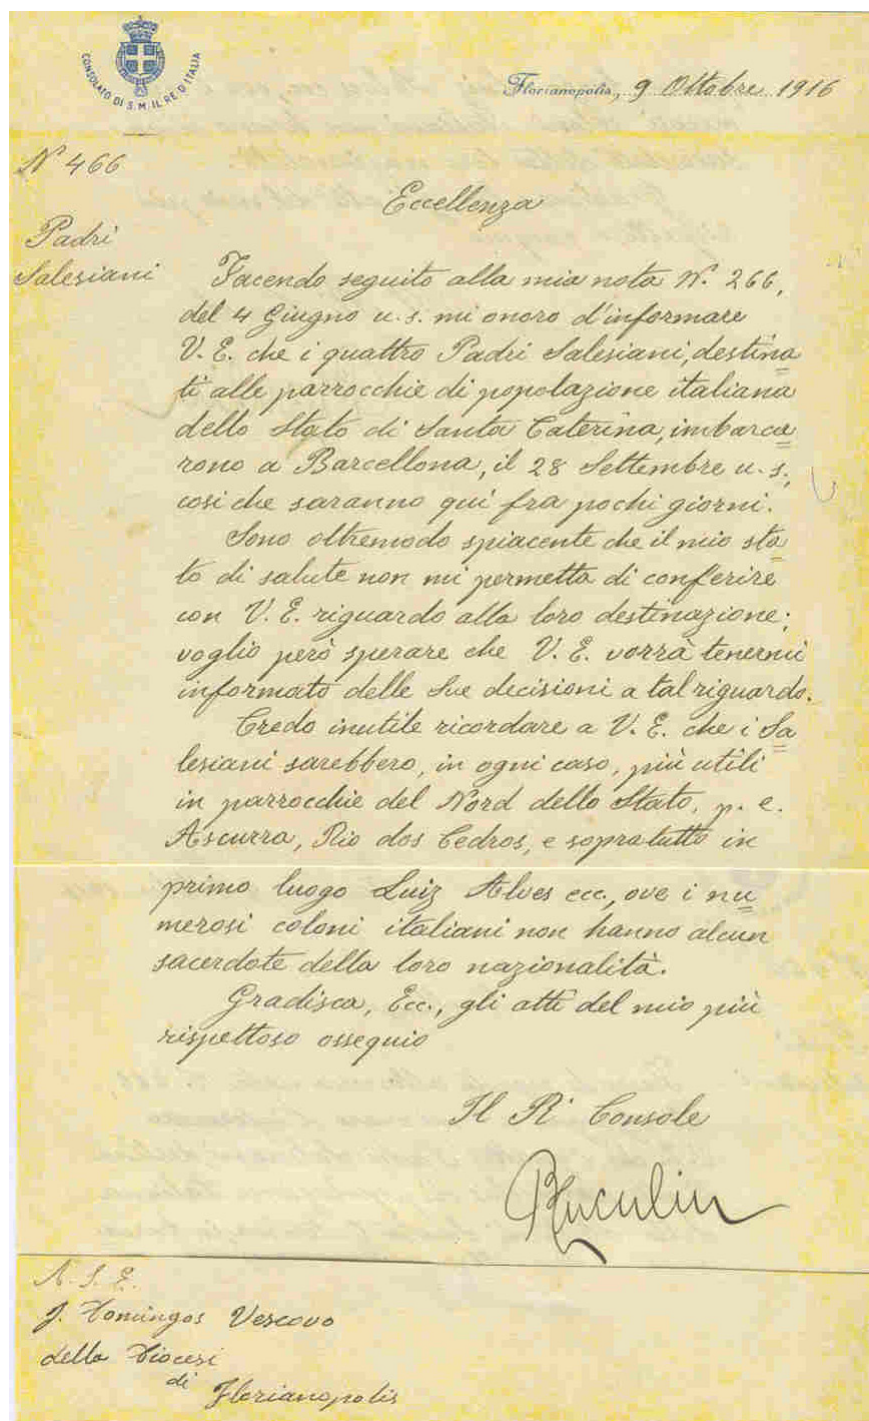 CONSOLATO DI S. M. IL RE D'ITALIA
Florianopolis, 9 Ottobre 1916
N° 466
Eccellenza
Padri
Salesiani
Facendo seguito alla mia nota N. 266,
del 4 Giugno u. s. mi onoro d'informare
V. E. che i quattro Padri Salesiani, destina=
ti alle parrocchie di popolazione italiana
dello Stato di Santa Caterina, imbarca=
rono a Barcellona, il 28 Settembre u. s.,
così che saranno qui fra pochi giorni.
Sono oltremodo spiacente che il mio sta=
to di salute non mi permetta di conferire
con V. E. riguardo alla loro destinazione;
voglio però sperare che V. E. vorrà tenermi
informato delle Sue decisioni a tal riguardo.
Credo inutile ricordare a V. E. che i Sa=
lesiani sarebbero, in ogni caso, più utili
in parrocchie del Nord dello Stato, p. e.
Ascurra, Rio dos Cedros, e sopratutto in
primo luogo Luiz Alves ecc., ove i nu=
merosi coloni italiani non hanno alcun
sacerdote della loro nazionalità.
Gradisca, Ecc., gli atti del mio più
rispettoso ossequio
Il Ri Console
A. S. E.
Domingos Vescovo
della Diocesi
di Florianopolis